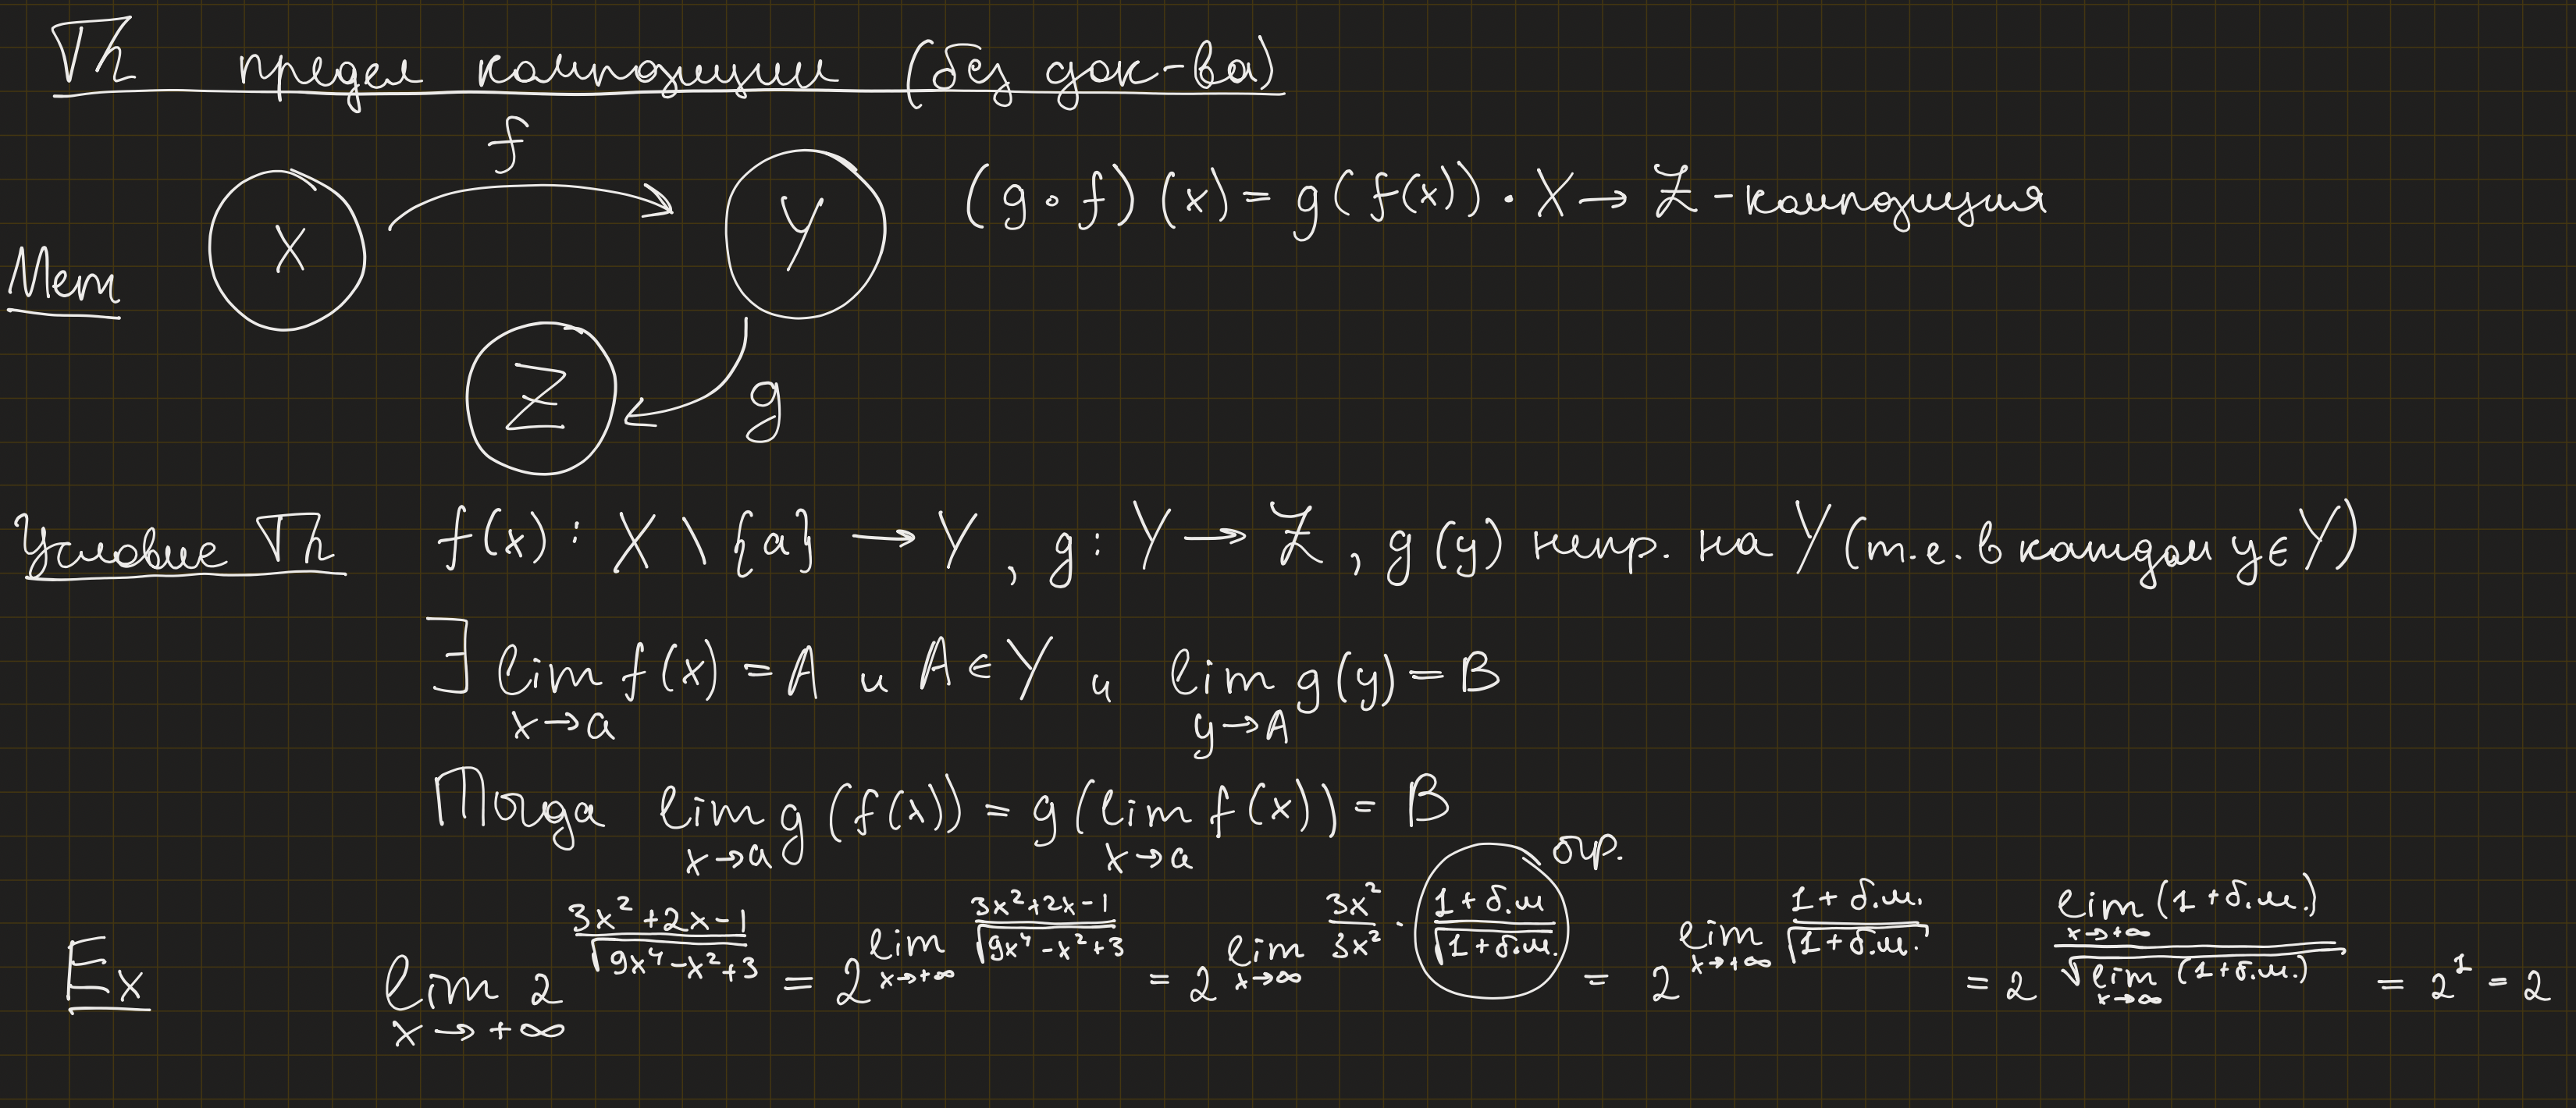 Th предел композиции (без док-ва)
f
X
Y
(g ∘ f)(x) = g(f(x)) · X → Z - композиция
Мет
Z
g
Условие Th f(x) : X \ {a} → Y , g : Y → Z , g(y) непр. на Y (т.е. в каждом y ∈ Y)
∃ lim_{x→a} f(x) = A и A ∈ Y и lim_{y→A} g(y) = B
Тогда lim_{x→a} g(f(x)) = g(lim_{x→a} f(x)) = B
огр.
Ex lim_{x→+∞} 2^{(3x²+2x-1)/√(9x⁴-x²+3)} = 2^{lim_{x→+∞} (3x²+2x-1)/√(9x⁴-x²+3)} = 2^{lim_{x→∞} 3x²/3x² · (1+б.м)/√(1+б.м.)} = 2^{lim_{x→+∞} (1+б.м.)/√(1+б.м.)} = 2^{lim_{x→+∞} (1+б.м.)/√(lim_{x→∞} (1+б.м.))} = 2¹ = 2